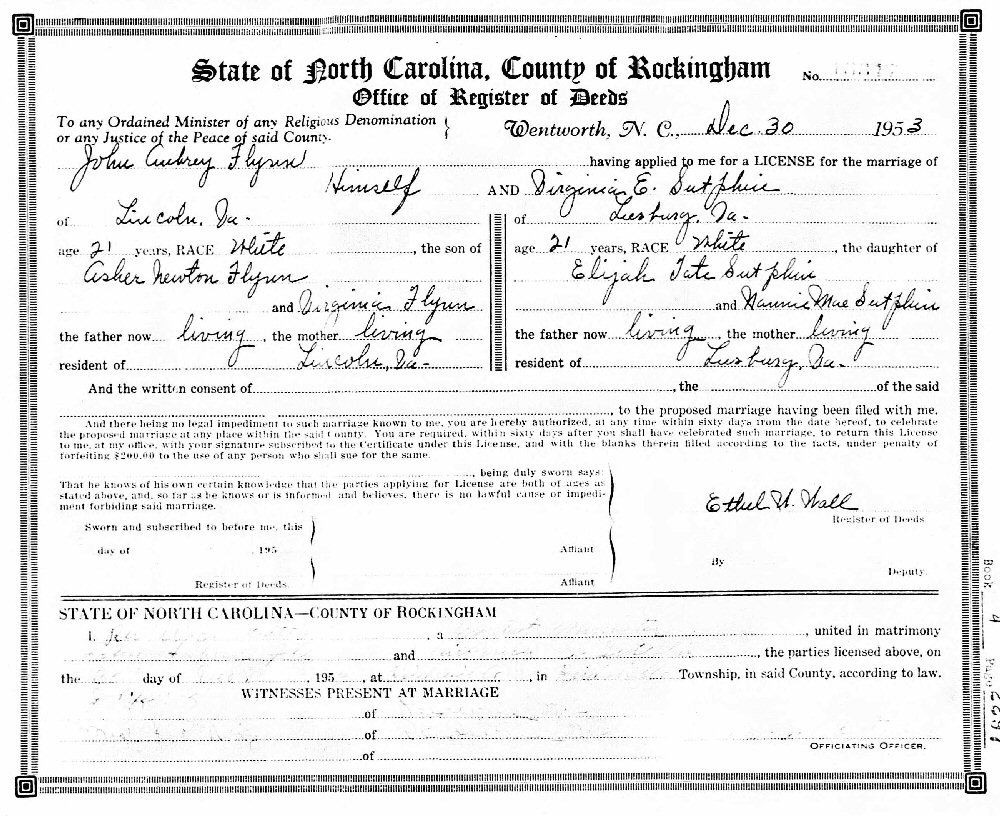 State of North Carolina, County of Rockingham
No.
Office of Register of Deeds
To any Ordained Minister of any Religious Denomination
or any Justice of the Peace of said County.
Wentworth, N. C., Dec. 30 1953
John Aubrey Flynn having applied to me for a LICENSE for the marriage of
Himself AND Virginia E. Sutphin
of Lincoln, Va.
of Leesburg, Va.
age 21 years, RACE White, the son of
age 21 years, RACE White, the daughter of
Asher Newton Flynn
Elijah Tate Sutphin
and Virginia Flynn
and Nannie Mae Sutphin
the father now living, the mother living
the father now living, the mother living
resident of Lincoln, Va.
resident of Leesburg, Va.
And the written consent of, the of the said
, to the proposed marriage having been filed with me.
And there being no legal impediment to such marriage known to me, you are hereby authorized, at any time within sixty days from the date hereof, to celebrate
the proposed marriage at any place within the said County. You are required, within sixty days after you shall have celebrated such marriage, to return this License
to me, at my office, with your signature subscribed to the Certificate under this License, and with the blanks therein filled according to the facts, under penalty of
forfeiting $200.00 to the use of any person who shall sue for the same.
, being duly sworn says:
That he knows of his own certain knowledge that the parties applying for License are both of ages as
stated above, and, so far as he knows or is informed and believes, there is no lawful cause or impedi-
ment forbiding said marriage.
Ethel W. Wall
Register of Deeds
Sworn and subscribed to before me, this
day of, 195
Affiant
By
Deputy.
Register of Deeds.
Affiant
STATE OF NORTH CAROLINA—COUNTY OF ROCKINGHAM
I, , a , united in matrimony
and , the parties licensed above, on
the day of , 195 , at , in Township, in said County, according to law.
WITNESSES PRESENT AT MARRIAGE
of
of
of
OFFICIATING OFFICER.
Book 4 Page